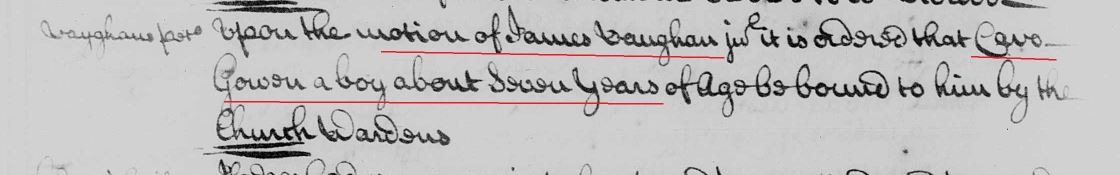 Vaughans pet.o Upon the motion of James Vaughan jur. it is ordered that Cavo
Gowen a boy about Seven Years of Age be bound to him by the
Church Wardens